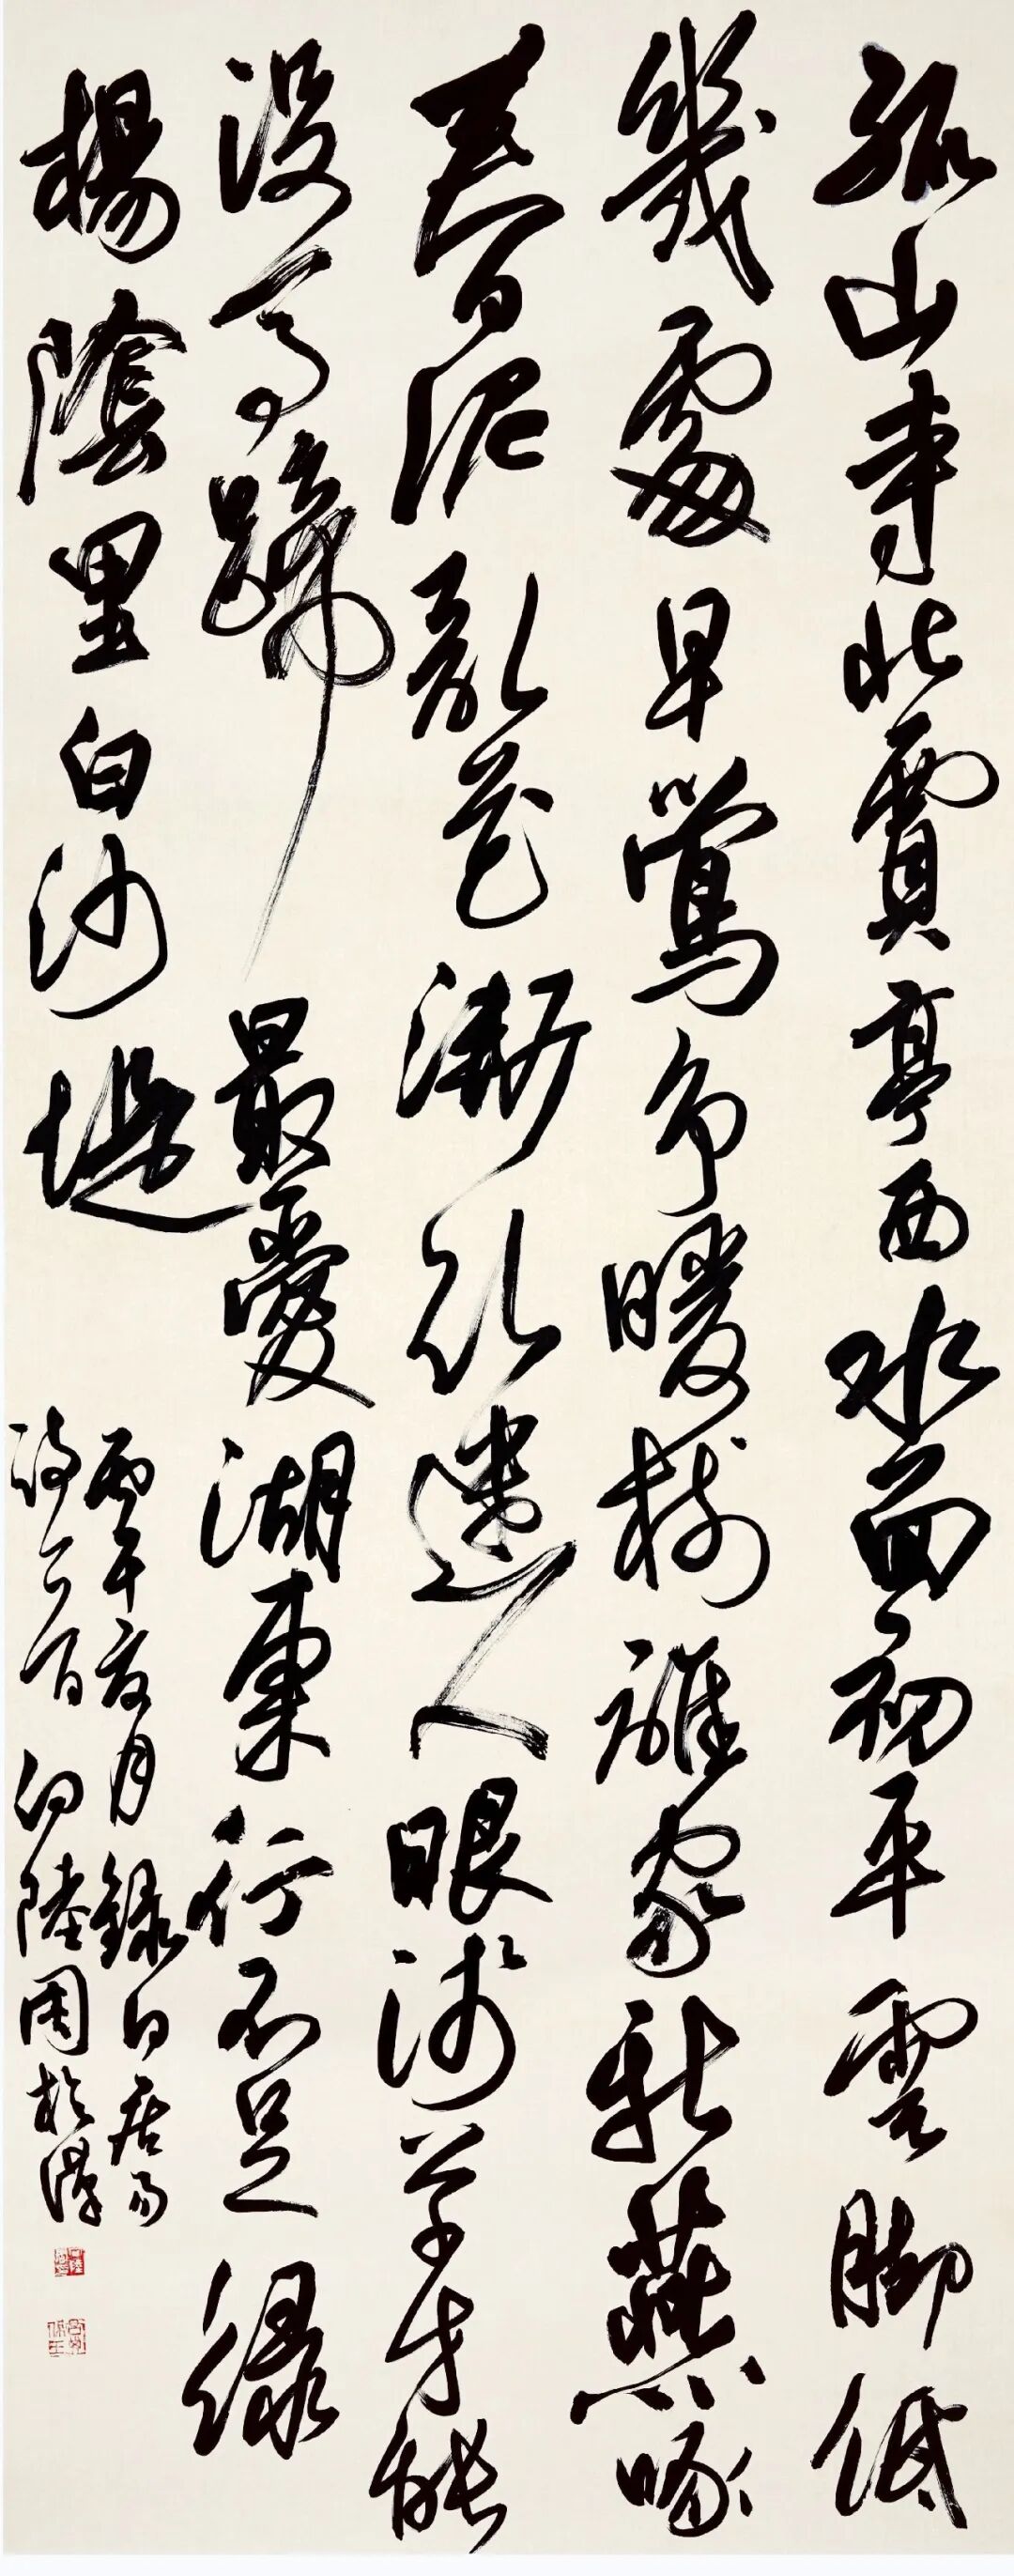 孤山寺北賈亭西水面初平雲脚低
幾處早鶯爭暖樹誰家新燕啄
春泥亂花漸欲迷人眼淺草才能
沒馬蹄最愛湖東行不足綠
楊陰里白沙堤
午夏月錄白居易
詩一首陸於漢